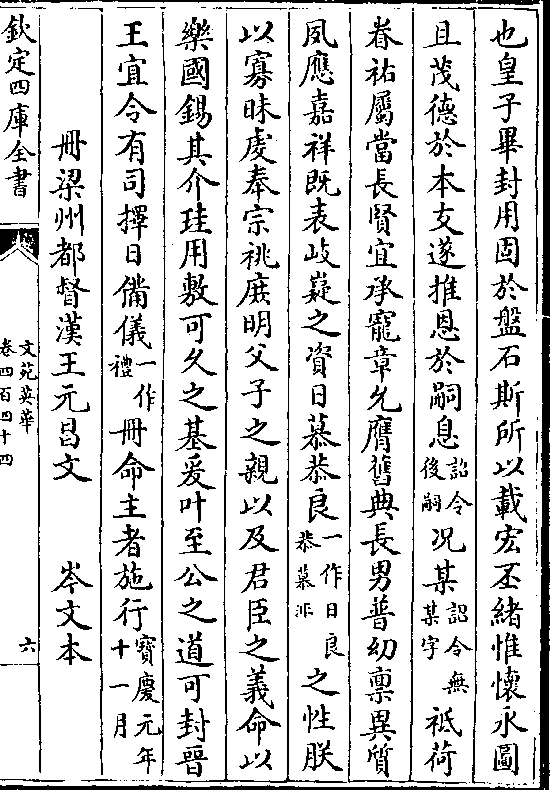 也皇子畢封用固於盤石斯所以載宏丕緒惟懷永圖
且茂德於本支遂推恩於嗣息詔令後嗣况某詔令無某字祗荷
眷祐屬當長賢宜承寵章允膺舊典長男普幼禀異質
夙應嘉祥既表岐嶷之資日慕恭良一作日良恭慕非之性朕
以寡昧虔奉宗祧庶明父子之親以及君臣之義命以
樂國錫其介珪用敷可久之基爰叶至公之道可封晉
王宜令有司擇日備儀一作禮冊命主者施行寶慶元年十一月
冊梁州都督漢王元昌文 岑文本
欽定四庫全書
文苑英華
卷四百四十四
六